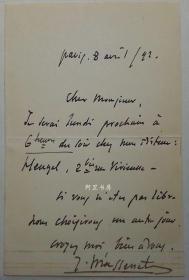 Paris. 8 avril /92.
Cher Monsieur,
Je serai lundi prochain à
6 heures du soir chez mon éditeur:
Heugel, 2 bis rue Vivienne -
si vous n'êtes pas libre
nous choisirons un autre jour
croyez moi bien à vous.
J. Massenet
阿里书房